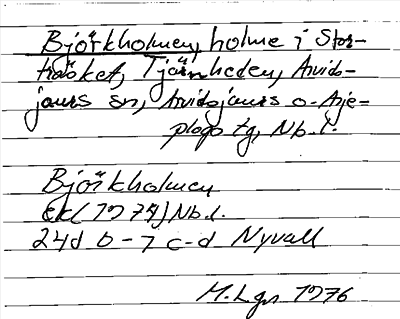 Björkholmen, holme i Stor-
träsket, Tjärnheden, Arvids-
jaurs sn, Arvidsjaurs o. Arje-
plogs tg, Nb.l.
Björkholmen
Ek (1974) Nb.l.
24d 6-7 c-d Nyvall
M. Lgn 1976